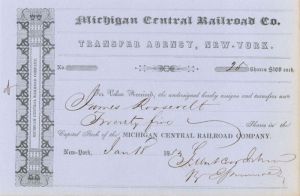 Michigan Central Railroad Co.
TRANSFER AGENCY, NEW-YORK.
No. 25 Shares $100 each
For Value Received, the undersigned hereby assigns and transfers unto
James Roosevelt
Twenty five Shares in the
Capital Stock of the MICHIGAN CENTRAL RAILROAD COMPANY.
New-York, Jan 18
MICHIGAN CENTRAL RAILROAD COMPANY.